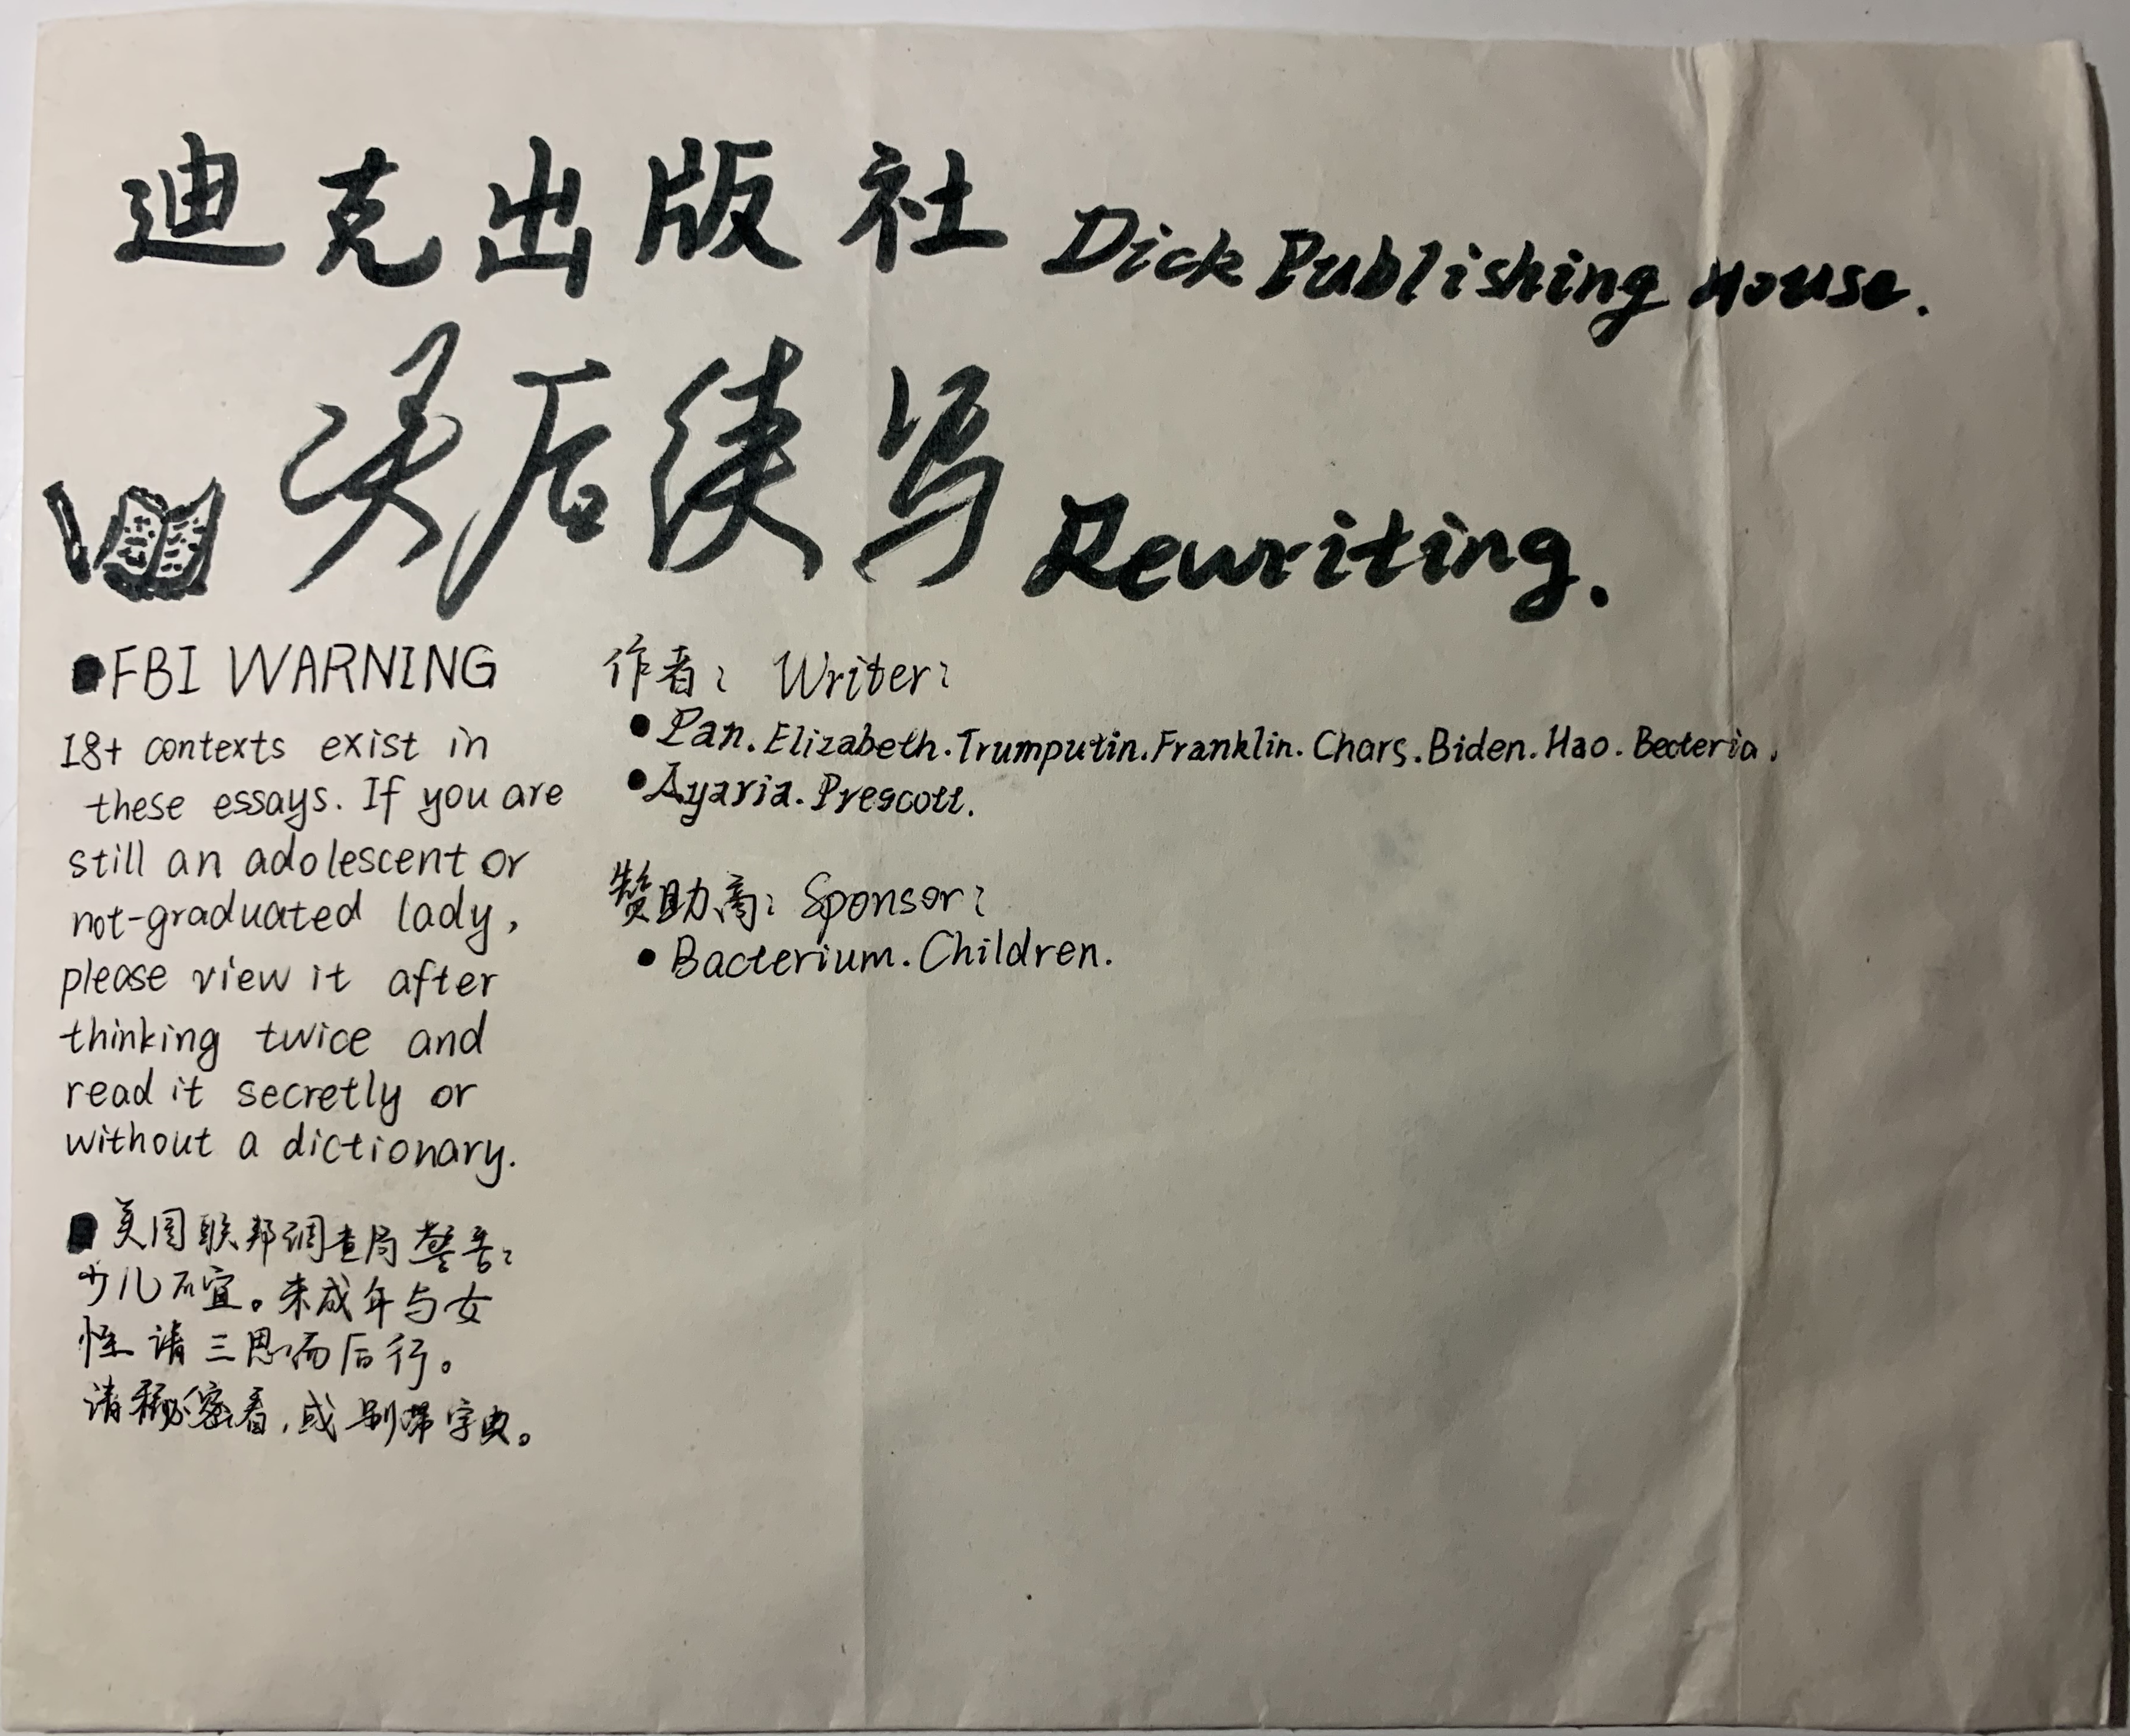 迪克出版社 Dick Publishing House.
读后续写 Rewriting.
FBI WARNING
18+ contexts exist in
these essays. If you are
still an adolescent or
not-graduated lady,
please view it after
thinking twice and
read it secretly or
without a dictionary.
美国联邦调查局警告:
少儿不宜。未成年与女
性请三思而后行。
请秘密看,或别带字典。
作者: Writer:
Pan. Elizabeth. Trumputin. Franklin. Chars. Biden. Hao. Becteria.
Ayaria. Prescott.
赞助商: Sponsor:
Bacterium. Children.